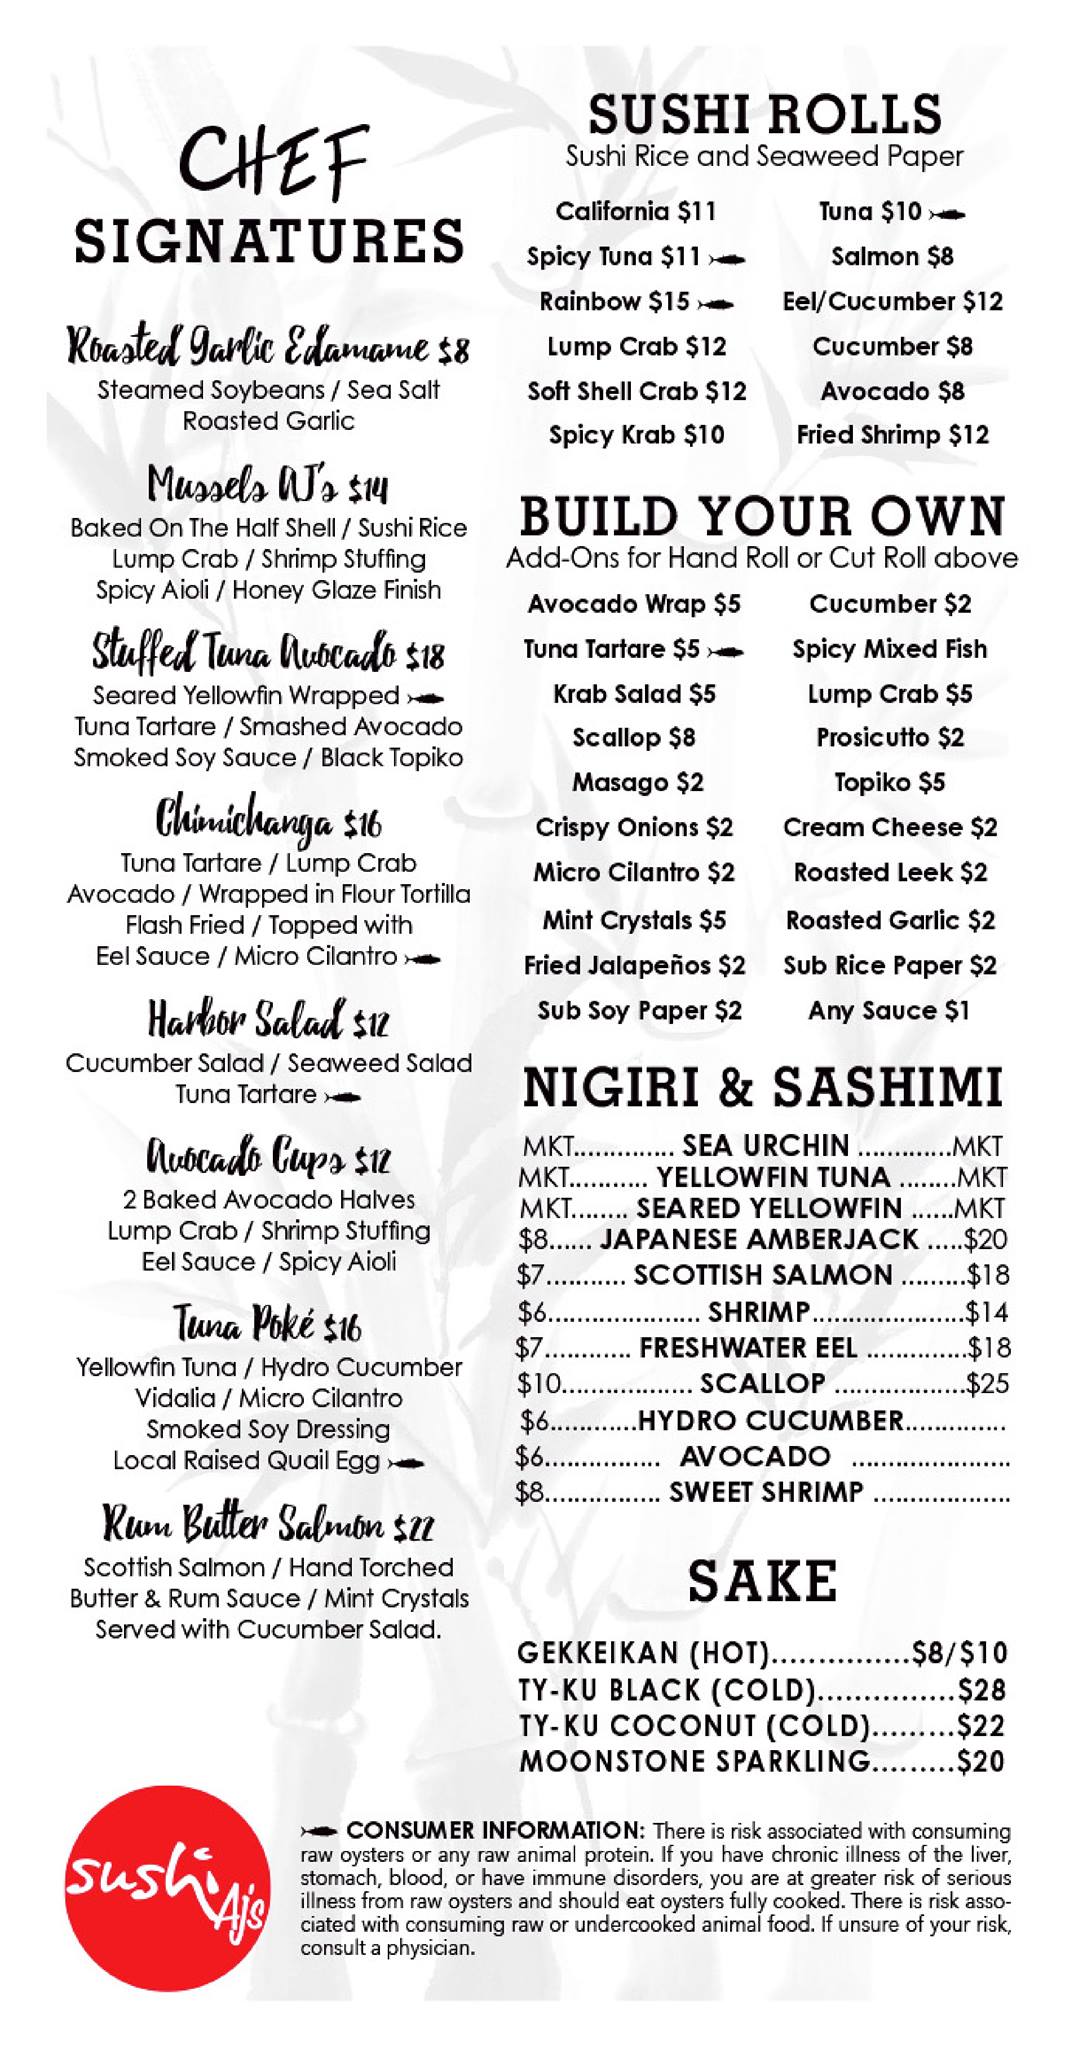 CHEF
SIGNATURES
Roasted Garlic Edamame $8
Steamed Soybeans / Sea Salt
Roasted Garlic
Mussels AJ's $14
Baked On The Half Shell / Sushi Rice
Lump Crab / Shrimp Stuffing
Spicy Aioli / Honey Glaze Finish
Stuffed Tuna Avocado $18
Seared Yellowfin Wrapped
Tuna Tartare / Smashed Avocado
Smoked Soy Sauce / Black Topiko
Chimichanga $16
Tuna Tartare / Lump Crab
Avocado / Wrapped in Flour Tortilla
Flash Fried / Topped with
Eel Sauce / Micro Cilantro
Harbor Salad $12
Cucumber Salad / Seaweed Salad
Tuna Tartare
Avocado Cups $12
2 Baked Avocado Halves
Lump Crab / Shrimp Stuffing
Eel Sauce / Spicy Aioli
Tuna Poké $16
Yellowfin Tuna / Hydro Cucumber
Vidalia / Micro Cilantro
Smoked Soy Dressing
Local Raised Quail Egg
Rum Butter Salmon $22
Scottish Salmon / Hand Torched
Butter & Rum Sauce / Mint Crystals
Served with Cucumber Salad.
SUSHI ROLLS
Sushi Rice and Seaweed Paper
California $11 Tuna $10
Spicy Tuna $11 Salmon $8
Rainbow $15 Eel/Cucumber $12
Lump Crab $12 Cucumber $8
Soft Shell Crab $12 Avocado $8
Spicy Krab $10 Fried Shrimp $12
BUILD YOUR OWN
Add-Ons for Hand Roll or Cut Roll above
Avocado Wrap $5 Cucumber $2
Tuna Tartare $5 Spicy Mixed Fish
Krab Salad $5 Lump Crab $5
Scallop $8 Prosicutto $2
Masago $2 Topiko $5
Crispy Onions $2 Cream Cheese $2
Micro Cilantro $2 Roasted Leek $2
Mint Crystals $5 Roasted Garlic $2
Fried Jalapeños $2 Sub Rice Paper $2
Sub Soy Paper $2 Any Sauce $1
NIGIRI & SASHIMI
MKT.............. SEA URCHIN .............MKT
MKT........... YELLOWFIN TUNA ........MKT
MKT........ SEARED YELLOWFIN ......MKT
$8...... JAPANESE AMBERJACK .....$20
$7........... SCOTTISH SALMON .........$18
$6..................... SHRIMP.....................$14
$7............ FRESHWATER EEL ..............$18
$10.................. SCALLOP ..................$25
$6............HYDRO CUCUMBER..............
$6................ AVOCADO ......................
$8................ SWEET SHRIMP ...................
SAKE
GEKKEIKAN (HOT)...............$8/$10
TY-KU BLACK (COLD)...............$28
TY-KU COCONUT (COLD).........$22
MOONSTONE SPARKLING.........$20
sushi
AJ's
CONSUMER INFORMATION: There is risk associated with consuming
raw oysters or any raw animal protein. If you have chronic illness of the liver,
stomach, blood, or have immune disorders, you are at greater risk of serious
illness from raw oysters and should eat oysters fully cooked. There is risk asso-
ciated with consuming raw or undercooked animal food. If unsure of your risk,
consult a physician.